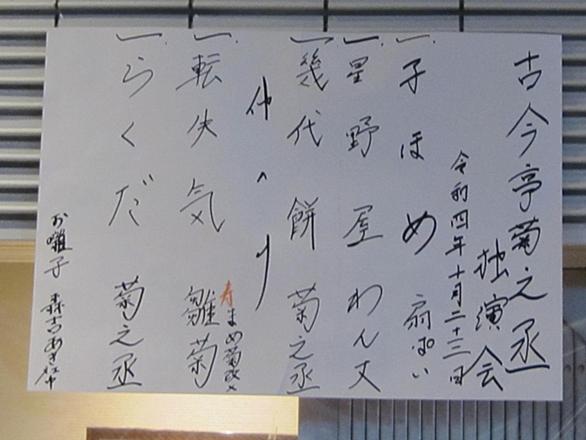 古今亭菊之丞
独演会
令和四年十月二十三日
一、子ほめ 扇ぱい
一、星野屋 わん丈
一、幾代餅 菊之丞
仲入り
一、転失気 雛菊
寿 まめ菊改メ
一、らくだ 菊之丞
お囃子 森吉あき社中